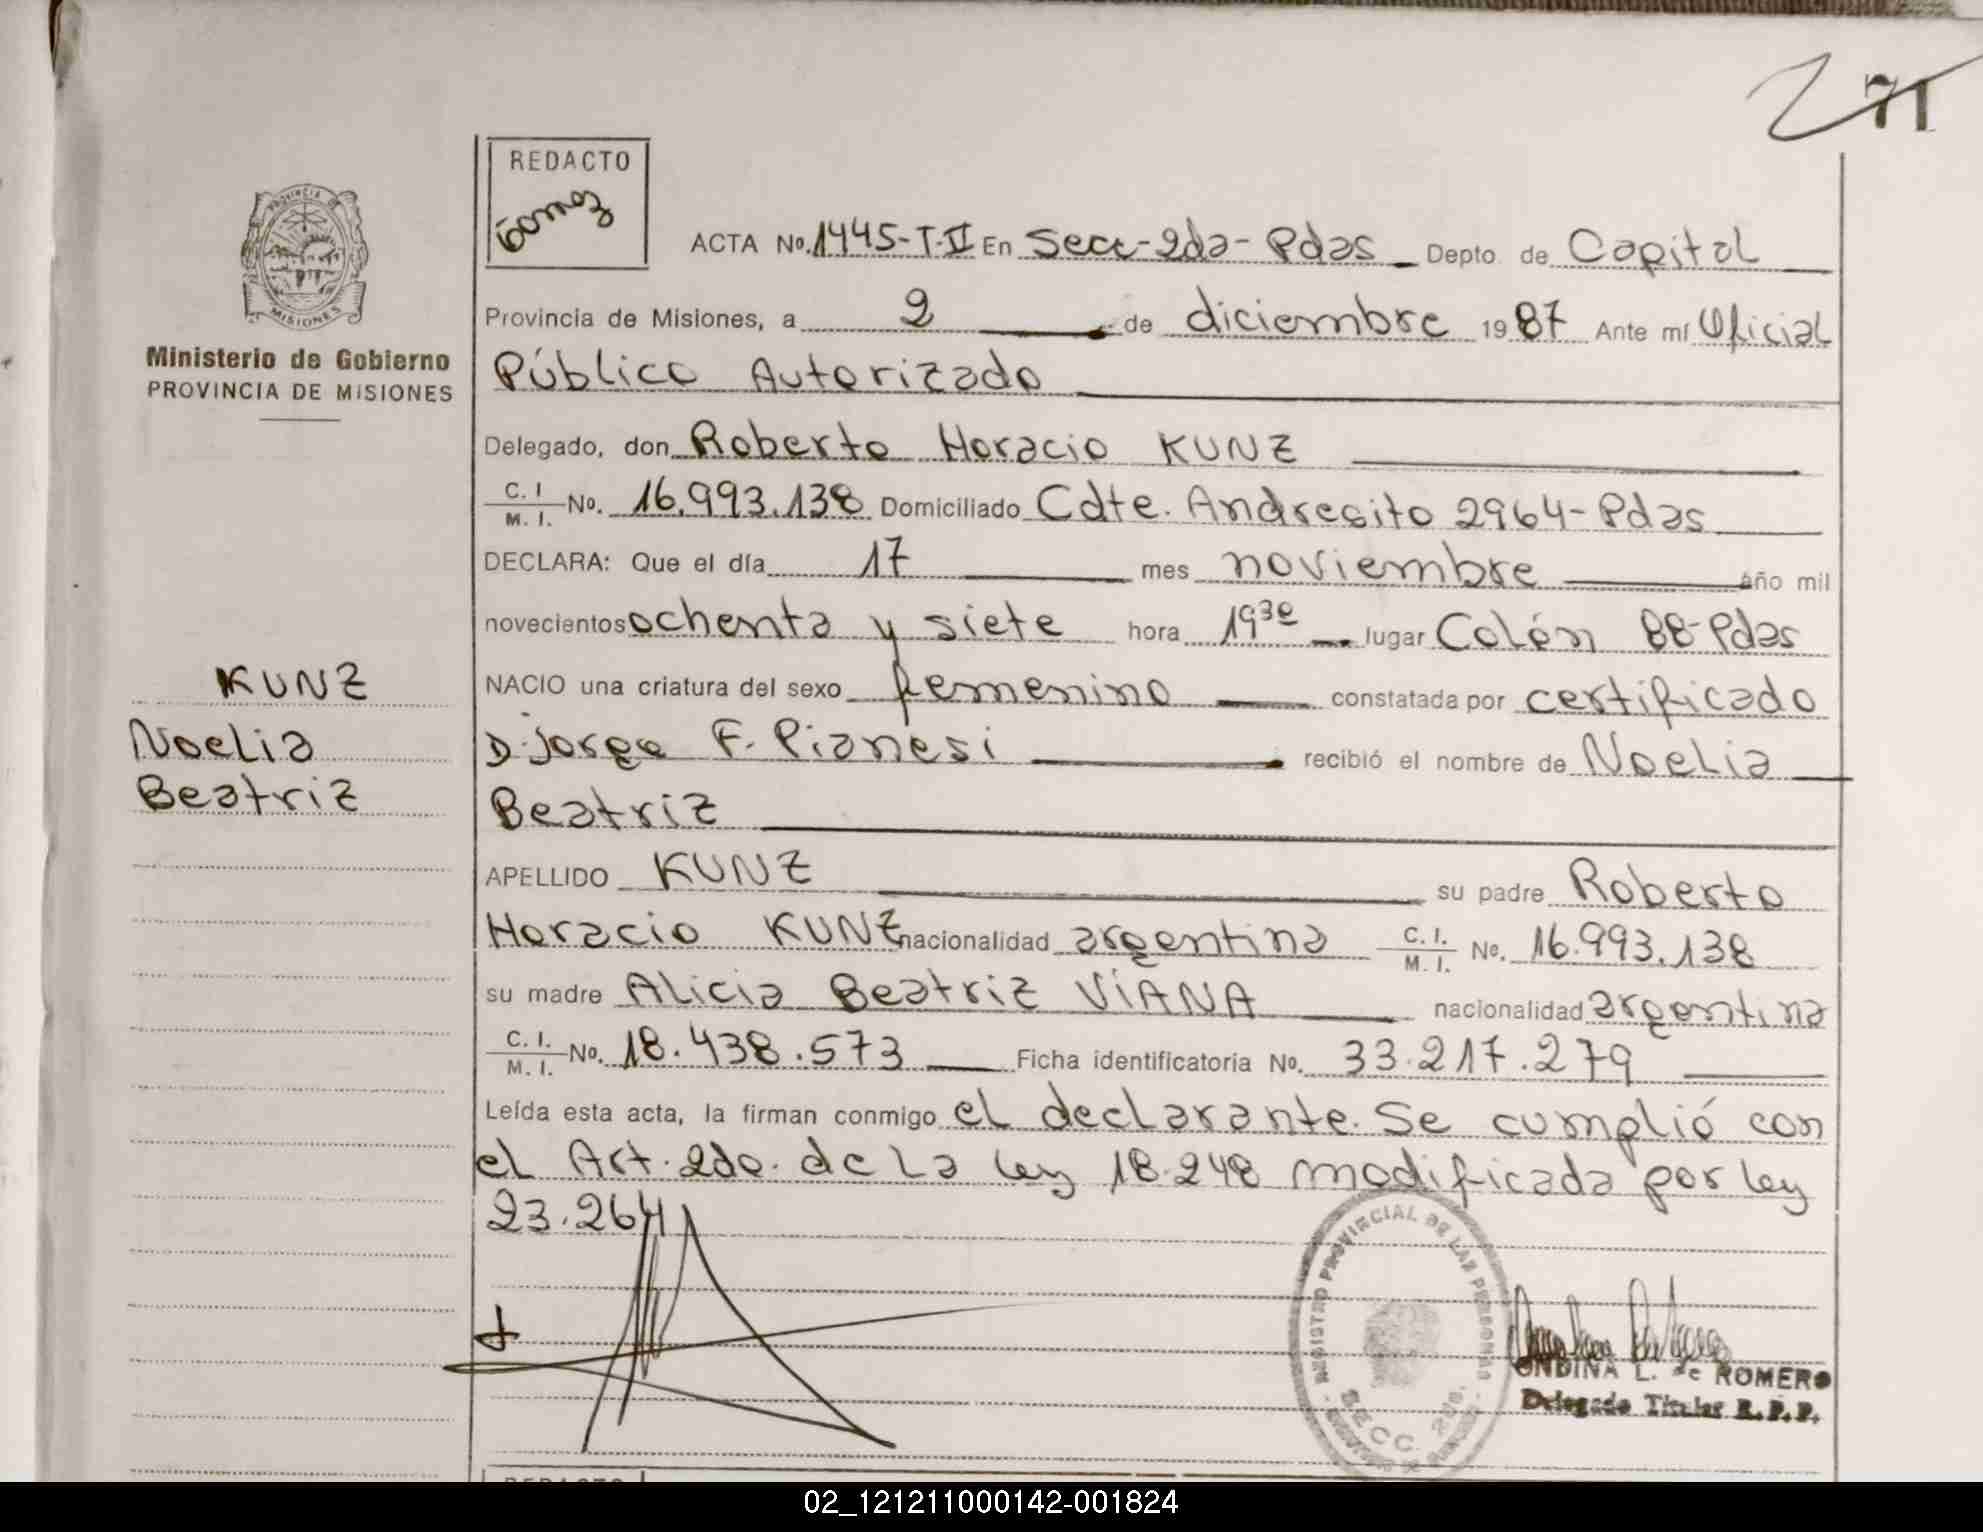 71
REDACTO
Gomez
PROVINCIA DE
MISIONES
Ministerio de Gobierno
PROVINCIA DE MISIONES
ACTA No. 1445-T-II En Secc-2da-Pdas Depto. de Capital
Provincia de Misiones, a 2 de diciembre 1987 Ante mí Oficial
Público Autorizado
Delegado, don Roberto Horacio KUNZ
C. I. M. I. No. 16.993.138 Domiciliado Cdte. Andresito 2964-Pdas
DECLARA: Que el día 17 mes noviembre año mil
novecientos ochenta y siete hora 19³⁰ lugar Colón 88-Pdas
NACIO una criatura del sexo femenino constatada por certificado
D. Jorge F. Pianesi recibió el nombre de Noelia
Beatriz
KUNZ
Noelia
Beatriz
APELLIDO KUNZ su padre Roberto
Horacio KUNZ nacionalidad argentina C. I. M. I. No. 16.993.138
su madre Alicia Beatriz VIANA nacionalidad argentina
C. I. M. I. No. 18.438.573 Ficha identificatoria No. 33.217.279
Leída esta acta, la firman conmigo el declarante. Se cumplió con
el Art. 2do. de la ley 18.248 modificada por ley
23.264
REGISTRO PROVINCIAL DE LAS PERSONAS
SECC. 2da.
ONDINA L. de ROMERO
Delegado Titular R.P.P.
REDACTO
02_121211000142-001824